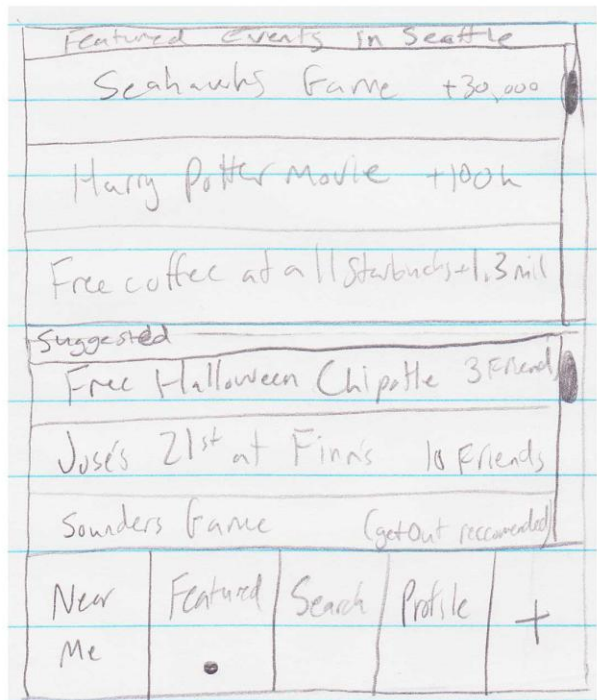 Featured Events in Seattle
Seahawks Game +30,000
Harry Potter Movie +100k
Free coffee at all Starbucks +1.3 mil
Suggested
Free Halloween Chipotle 3 Friends
Jose's 21st at Finn's 18 Friends
Sounders Game (getOut reccomended)
Near Me
Featured
Search
Profile
+